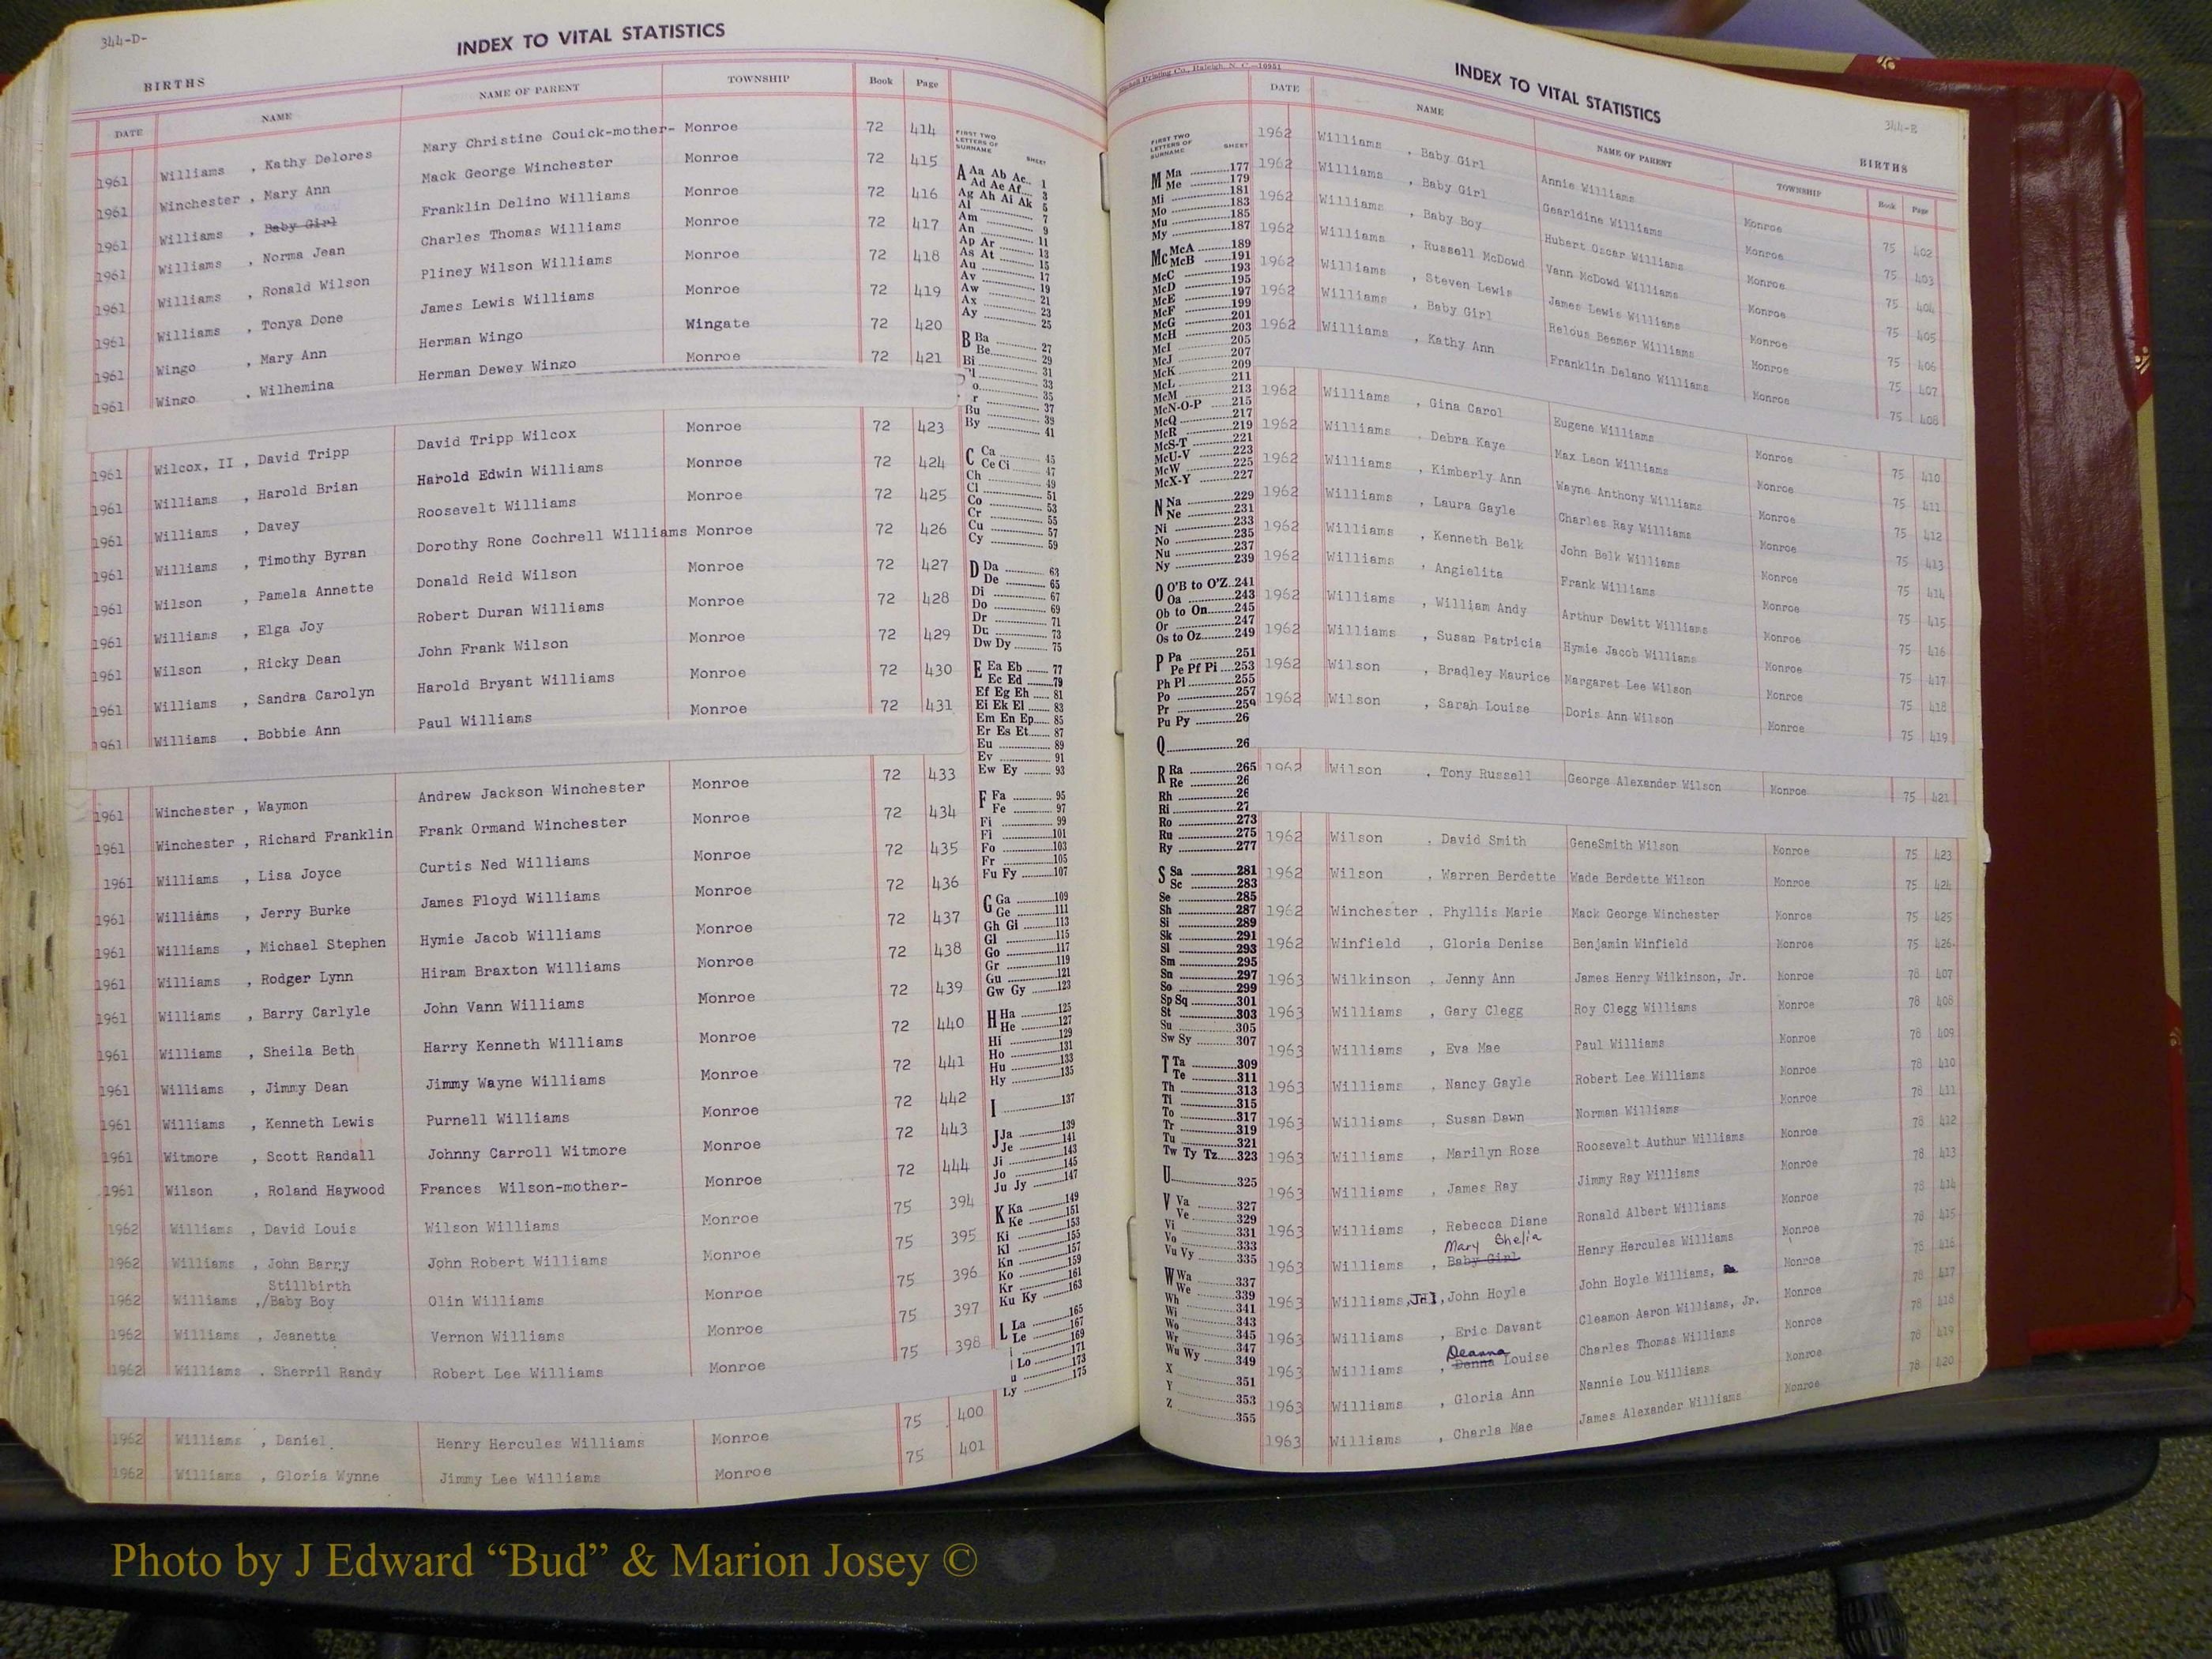 344-D-
INDEX TO VITAL STATISTICS
BIRTHS
DATE NAME NAME OF PARENT TOWNSHIP Book Page
1961 Williams , Kathy Delores Mary Christine Couick-mother- Monroe 72 414
1961 Winchester , Mary Ann Mack George Winchester Monroe 72 415
1961 Williams , Baby Girl Franklin Delino Williams Monroe 72 416
1961 Williams , Norma Jean Charles Thomas Williams Monroe 72 417
1961 Williams , Ronald Wilson Pliney Wilson Williams Monroe 72 418
1961 Williams , Tonya Done James Lewis Williams Monroe 72 419
1961 Wingo , Mary Ann Herman Wingo Wingate 72 420
1961 Wingo , Wilhemina Herman Dewey Wingo Monroe 72 421
1961 Wilcox, II , David Tripp David Tripp Wilcox Monroe 72 423
1961 Williams , Harold Brian Harold Edwin Williams Monroe 72 424
1961 Williams , Davey Roosevelt Williams Monroe 72 425
1961 Williams , Timothy Byran Dorothy Rone Cochrell Williams Monroe 72 426
1961 Wilson , Pamela Annette Donald Reid Wilson Monroe 72 427
1961 Williams , Elga Joy Robert Duran Williams Monroe 72 428
1961 Wilson , Ricky Dean John Frank Wilson Monroe 72 429
1961 Williams , Sandra Carolyn Harold Bryant Williams Monroe 72 430
1961 Williams , Bobbie Ann Paul Williams Monroe 72 431
1961 Winchester , Waymon Andrew Jackson Winchester Monroe 72 433
1961 Winchester , Richard Franklin Frank Ormand Winchester Monroe 72 434
1961 Williams , Lisa Joyce Curtis Ned Williams Monroe 72 435
1961 Williams , Jerry Burke James Floyd Williams Monroe 72 436
1961 Williams , Michael Stephen Hymie Jacob Williams Monroe 72 437
1961 Williams , Rodger Lynn Hiram Braxton Williams Monroe 72 438
1961 Williams , Barry Carlyle John Vann Williams Monroe 72 439
1961 Williams , Sheila Beth Harry Kenneth Williams Monroe 72 440
1961 Williams , Jimmy Dean Jimmy Wayne Williams Monroe 72 441
1961 Williams , Kenneth Lewis Purnell Williams Monroe 72 442
1961 Witmore , Scott Randall Johnny Carroll Witmore Monroe 72 443
1961 Wilson , Roland Haywood Frances Wilson-mother- Monroe 72 444
1962 Williams , David Louis Wilson Williams Monroe 75 394
1962 Williams , John Barry John Robert Williams Monroe 75 395
Stillbirth
1962 Williams ,/Baby Boy Olin Williams Monroe 75 396
1962 Williams , Jeanette Vernon Williams Monroe 75 397
1962 Williams , Sherril Randy Robert Lee Williams Monroe 75 398
1962 Williams , Daniel Henry Hercules Williams Monroe 75 400
1962 Williams , Gloria Wynne Jimmy Lee Williams Monroe 75 401
FIRST TWO
LETTERS OF
SURNAME SHEET
A Aa Ab Ac.. 1
Ad Ae Af... 3
Ag Ah Ai Ak 5
Al 7
Am 9
An 11
Ap Ar 13
As At 15
Au 17
Av 19
Aw 21
Ax 23
Ay 25
B Ba 27
Be 29
Bi 31
33
35
37
Bu 39
By 41
C Ca 45
Ce Ci 47
Ch 49
Cl 51
Co 53
Cr 55
Cu 57
Cy 59
D Da 63
De 65
Di 67
Do 69
Dr 71
Du 73
Dw Dy 75
E Ea Eb 77
Ec Ed 79
Ef Eg Eh 81
Ei Ek El 83
Em En Ep 85
Er Es Et 87
Eu 89
Ev 91
Ew Ey 93
F Fa 95
Fe 97
Fi 99
Fl 101
Fo 103
Fr 105
Fu Fy 107
G Ga 109
Ge 111
Gh Gi 113
Gl 115
Go 117
Gr 119
Gu 121
Gw Gy 123
H Ha 125
He 127
Hi 129
Ho 131
Hu 133
Hy 135
I 137
J Ja 139
Je 141
Ji 143
Jo 145
Ju Jy 147
K Ka 149
Ke 151
Ki 153
Kl 155
Kn 157
Ko 159
Kr 161
Ku Ky 163
L La 165
Le 167
169
Lo 171
173
Ly 175
Printing Co., Raleigh, N. C.—10951
INDEX TO VITAL STATISTICS
344-E
BIRTHS
DATE NAME NAME OF PARENT TOWNSHIP Book Page
FIRST TWO
LETTERS OF
SURNAME SHEET
M Ma 177
Me 179
Mi 181
Mo 183
Mu 185
My 187
Mc McA 189
McB 191
McC 193
McD 195
McE 197
McF 199
McG 201
McH 203
McI 205
McJ 207
McK 209
McL 211
McM 213
McN-O-P 215
McQ 217
McR 219
McS-T 221
McU-V 223
McW 225
McX-Y 227
N Na 229
Ne 231
Ni 233
No 235
Nu 237
Ny 239
O O'B to O'Z..241
Oa 243
Ob to On 245
Or 247
Os to Oz 249
P Pa 251
Pe Pf Pi 253
Ph Pl 255
Po 257
Pr 259
Pu Py 26
Q 26
R Ra 265
Re 26
Rh 26
Ri 27
Ro 273
Ru 275
Ry 277
S Sa 281
Sc 283
Se 285
Sh 287
Si 289
Sk 291
Sl 293
Sm 295
Sn 297
So 299
Sp Sq 301
St 303
Su 305
Sw Sy 307
T Ta 309
Te 311
Th 313
Ti 315
To 317
Tr 319
Tu 321
Tw Ty Tz 323
U 325
V Va 327
Ve 329
Vi 331
Vo 333
Vu Vy 335
W Wa 337
We 339
Wh 341
Wi 343
Wo 345
Wr 347
Wu Wy 349
X 351
Y 353
Z 355
1962 Williams , Baby Girl Annie Williams Monroe 75 402
1962 Williams , Baby Girl Gearldine Williams Monroe 75 403
1962 Williams , Baby Boy Hubert Oscar Williams Monroe 75 404
1962 Williams , Russell McDowd Vann McDowd Williams Monroe 75 405
1962 Williams , Steven Lewis James Lewis Williams Monroe 75 406
1962 Williams , Baby Girl Relous Beemer Williams Monroe 75 407
1962 Williams , Kathy Ann Franklin Delano Williams Monroe 75 408
1962 Williams , Gina Carol Eugene Williams Monroe 75 410
1962 Williams , Debra Kaye Max Leon Williams Monroe 75 411
1962 Williams , Kimberly Ann Wayne Anthony Williams Monroe 75 412
1962 Williams , Laura Gayle Charles Ray Williams Monroe 75 413
1962 Williams , Kenneth Belk John Belk Williams Monroe 75 414
1962 Williams , Angielita Frank Williams Monroe 75 415
1962 Williams , William Andy Arthur Dewitt Williams Monroe 75 416
1962 Williams , Susan Patricia Hymie Jacob Williams Monroe 75 417
1962 Wilson , Bradley Maurice Margaret Lee Wilson Monroe 75 418
1962 Wilson , Sarah Louise Doris Ann Wilson Monroe 75 419
1962 Wilson , Tony Russell George Alexander Wilson Monroe 75 421
1962 Wilson , David Smith GeneSmith Wilson Monroe 75 423
1962 Wilson , Warren Berdette Wade Berdette Wilson Monroe 75 424
1962 Winchester , Phyllis Marie Mack George Winchester Monroe 75 425
1962 Winfield , Gloria Denise Benjamin Winfield Monroe 75 426
1963 Wilkinson , Jenny Ann James Henry Wilkinson, Jr. Monroe 78 407
1963 Williams , Gary Clegg Roy Clegg Williams Monroe 78 408
1963 Williams , Eva Mae Paul Williams Monroe 78 409
1963 Williams , Nancy Gayle Robert Lee Williams Monroe 78 410
1963 Williams , Susan Dawn Norman Williams Monroe 78 411
1963 Williams , Marilyn Rose Roosevelt Authur Williams Monroe 78 412
1963 Williams , James Ray Jimmy Ray Williams Monroe 78 413
1963 Williams , Rebecca Diane Ronald Albert Williams Monroe 78 414
Mary Shelia
1963 Williams , Baby Girl Henry Hercules Williams Monroe 78 415
1963 Williams, , John Hoyle John Hoyle Williams, Monroe 78 416
1963 Williams , Eric Davant Cleamon Aaron Williams, Jr. Monroe 78 417
Deanna
1963 Williams , Donna Louise Charles Thomas Williams Monroe 78 418
1963 Williams , Gloria Ann Nannie Lou Williams Monroe 78 419
1963 Williams , Charla Mae James Alexander Williams Monroe 78 420
Photo by J Edward “Bud” & Marion Josey ©